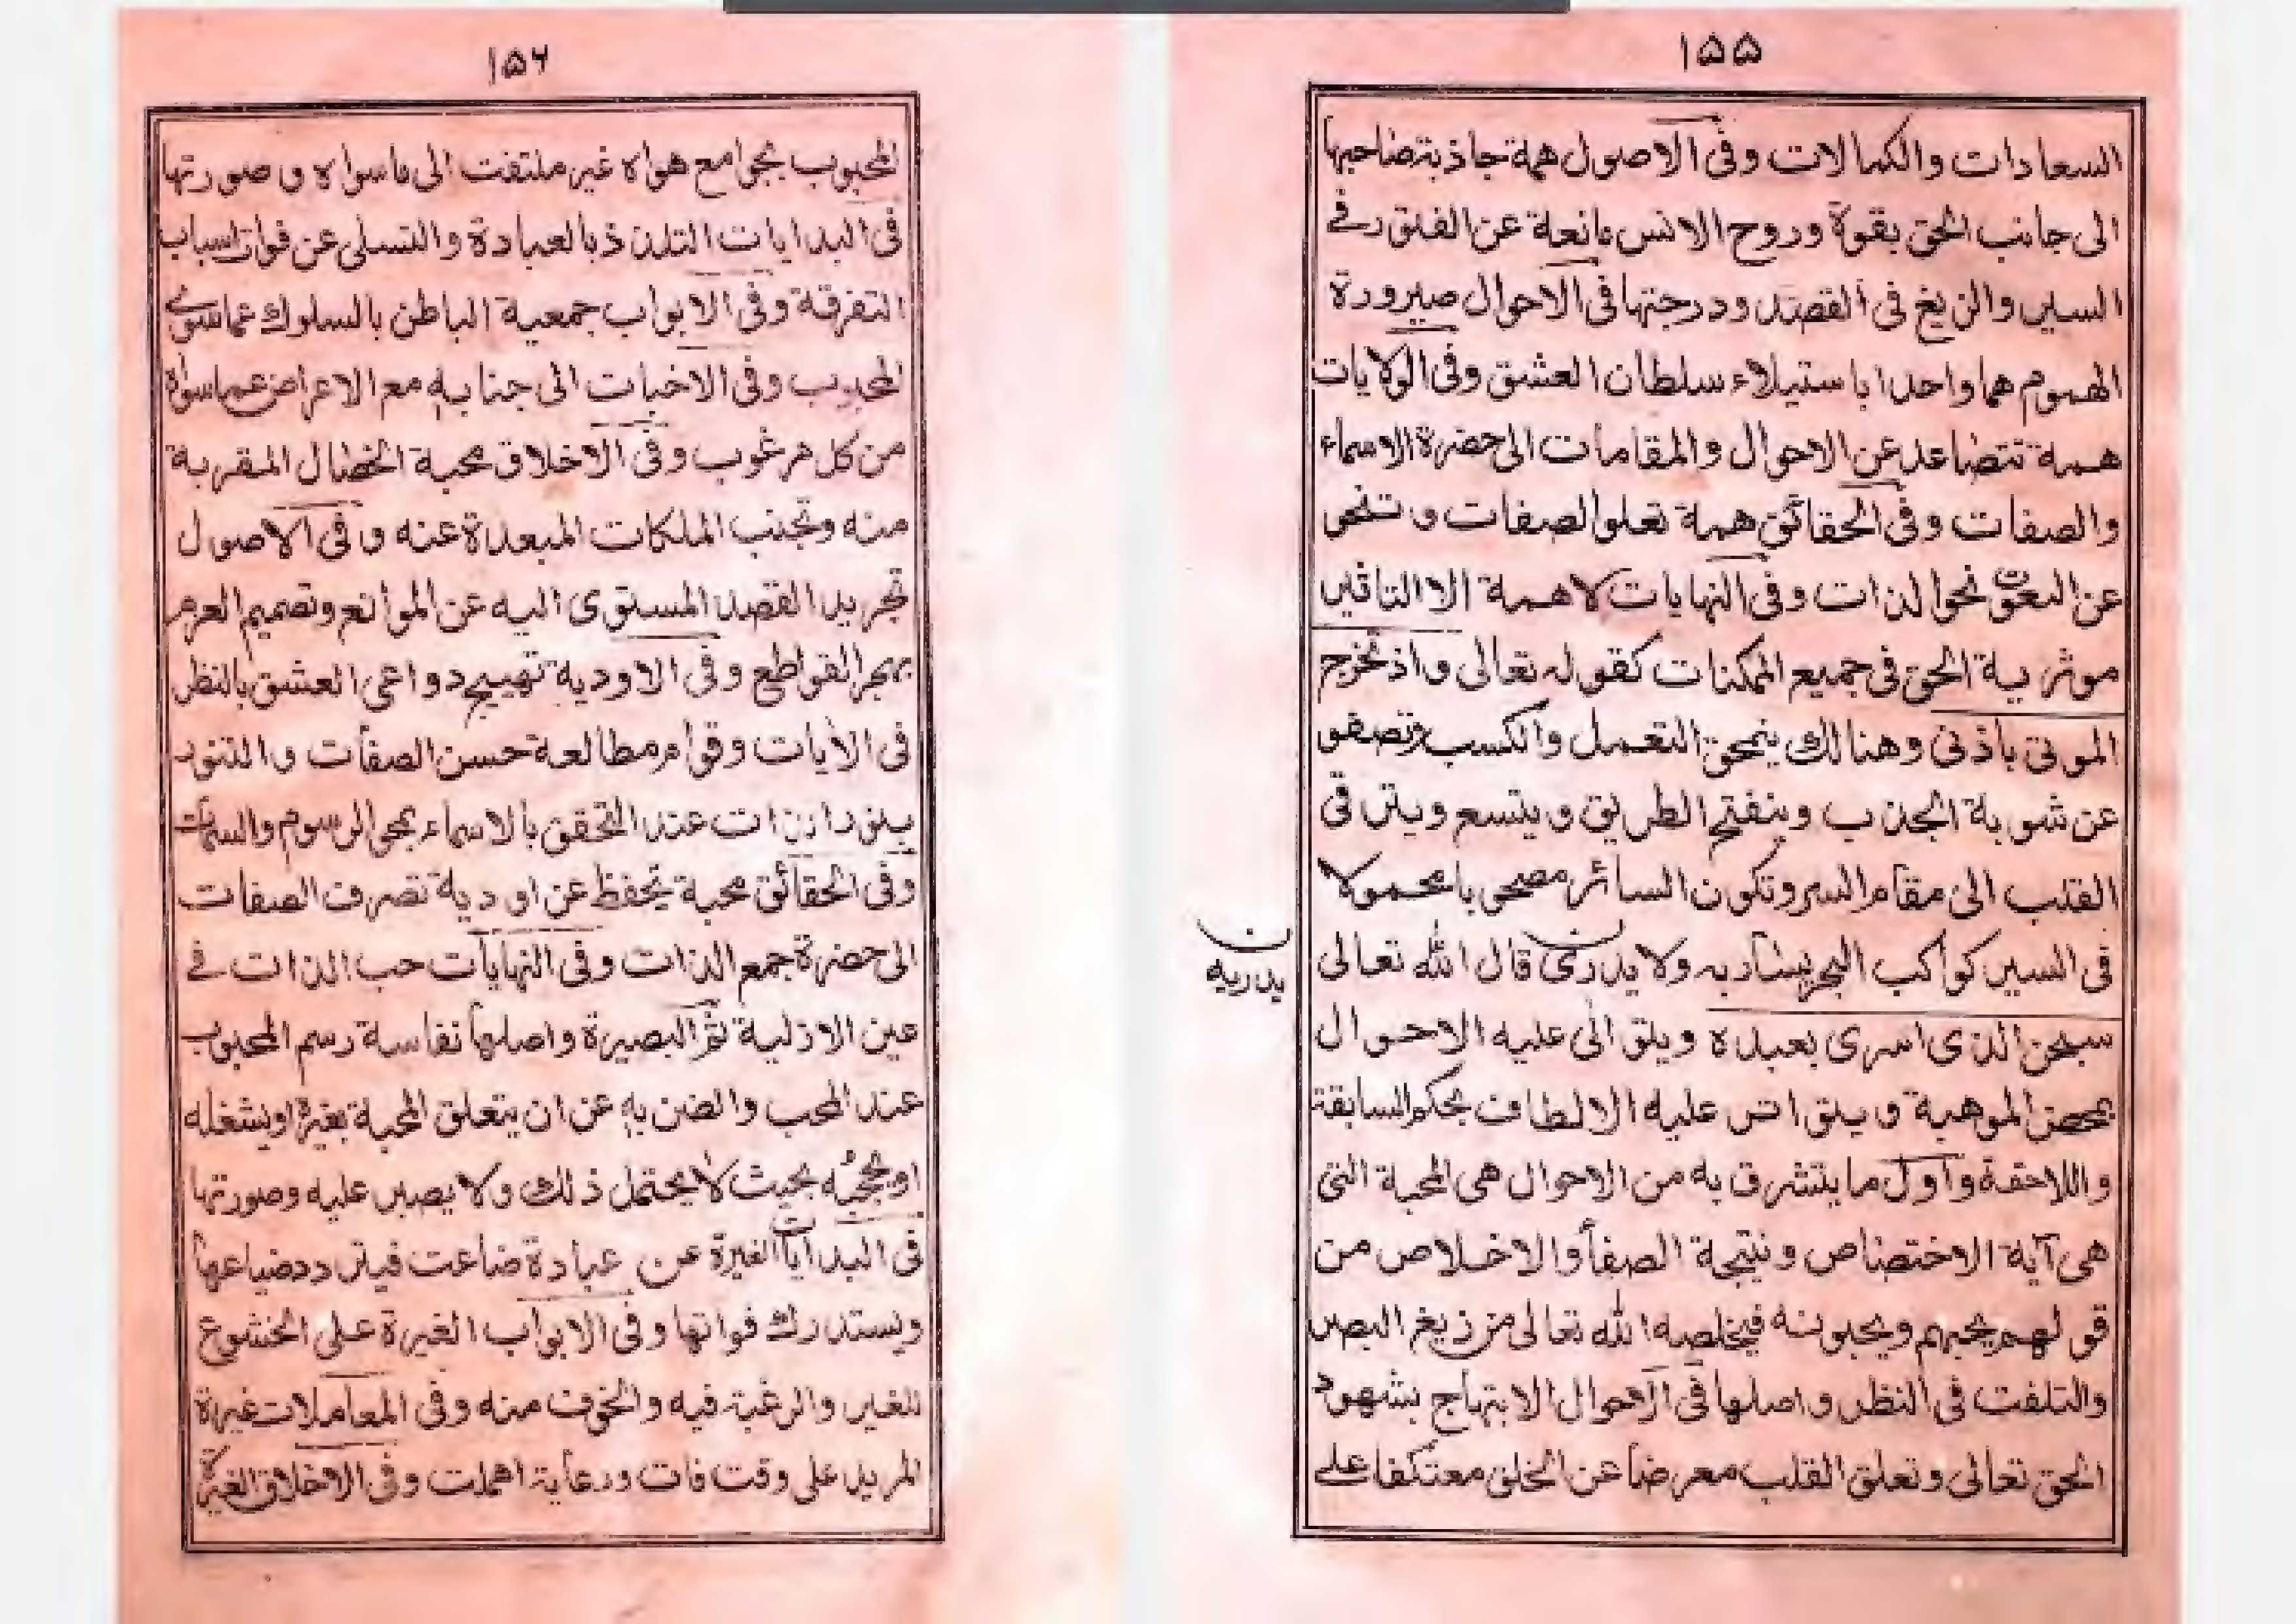 ۱۵۵
السعادات والكمالات وفى الاصول همة جاذبة صاحبها
الى جانب الحق بقوة وروح الانس مانعة عن الفتور فے
السير والزيغ فى القصد ودرجتها فى الاحوال صيرورة
الهموم هما واحدا باستيلاء سلطان العشق وفى الولايات
همة تتصاعد عن الاحوال والمقامات الى حضرة الاسماء
والصفات وفى الحقائق همة تعلو الصفات و تنحى
عن النعوت نحو الذات وفى النهايات لا همة الا التاثير
موثرية الحق فى جميع الممكنات كقوله تعالى واذ تخرج
الموتى باذنى وهنالك ينمحق التعمل والكسب وتصفو
عن شوبه الجذب وينفتح الطريق ويتسع ويترقى
القلب الى مقام السر وتكون السائر محمولا
فى السير كواكب البحر يسار به ولا يدرى قال الله تعالى
يدريه
سبحن الذى اسرى بعبده ويتوالى عليه الاحوال
بمحض الموهبة و يتواتر عليه الالطاف بحكم السابقة
واللاحقة واول ما يتشرف به من الاحوال هى المحبة التى
هى آية الاختصاص ونتيجة الصفا والاخلاص من
قو لهم يحبهم ويحبونه فيخلصه الله تعالى من زيغ البصر
والتلفت فى النظر واصلها فى الاحوال الابتهاج بشهود
الحق تعالى وتعلق القلب معرضا عن الخلق معتكفا على
۱۵۶
المحبوب بجوامع هواه غير ملتفت الى ماسواه و صورتها
فى البدايات التلذذ بالعبادة والتسلى عن فوات اسباب
التفرقة وفى الابواب جمعية الباطن بالسلوك عما سوى
المحبوب وفى الاخبات الى جنابه مع الاعراض عما سواه
من كل مرغوب وفى الاخلاق محبة الخصال المقربة
منه وتجنب الملكات المبعدة عنه و فى الاصول
تجريد القصد المستوى اليه عن الموانع وتصميم العزم
بهجر القواطع وفى الاودية تهييج دواعى العشق بالنظر
فى الايات وقوام مطالعة حسن الصفات والتنور
بنور الذات عند التحقق بالاسماء بمحو الرسوم والسمات
وفى الحقائق محبة تحفظ عن اودية تصرف الصفات
الى حضرة جمع الذات وفى النهايات حب الذات فے
عين الازلية ثم البصيرة واصلها نفاسة رسم المحبوب
عند المحب والضن به عن ان يتعلق المحبة بغيره او يشغله
او يحجبه بحيث لا يحتمل ذلك ولا يصبر عليه وصورتها
فى البدايات الغيرة عن عبادة ضاعت فيتردد ضياعها
ويستدرك فواتها وفى الابواب الغيرة على الخشوع
للغير والرغبة فيه والخوف منه وفى المعاملات غيرة
المريد على وقت فات ورعاية اهملت وفى الاخلاق الغيرة